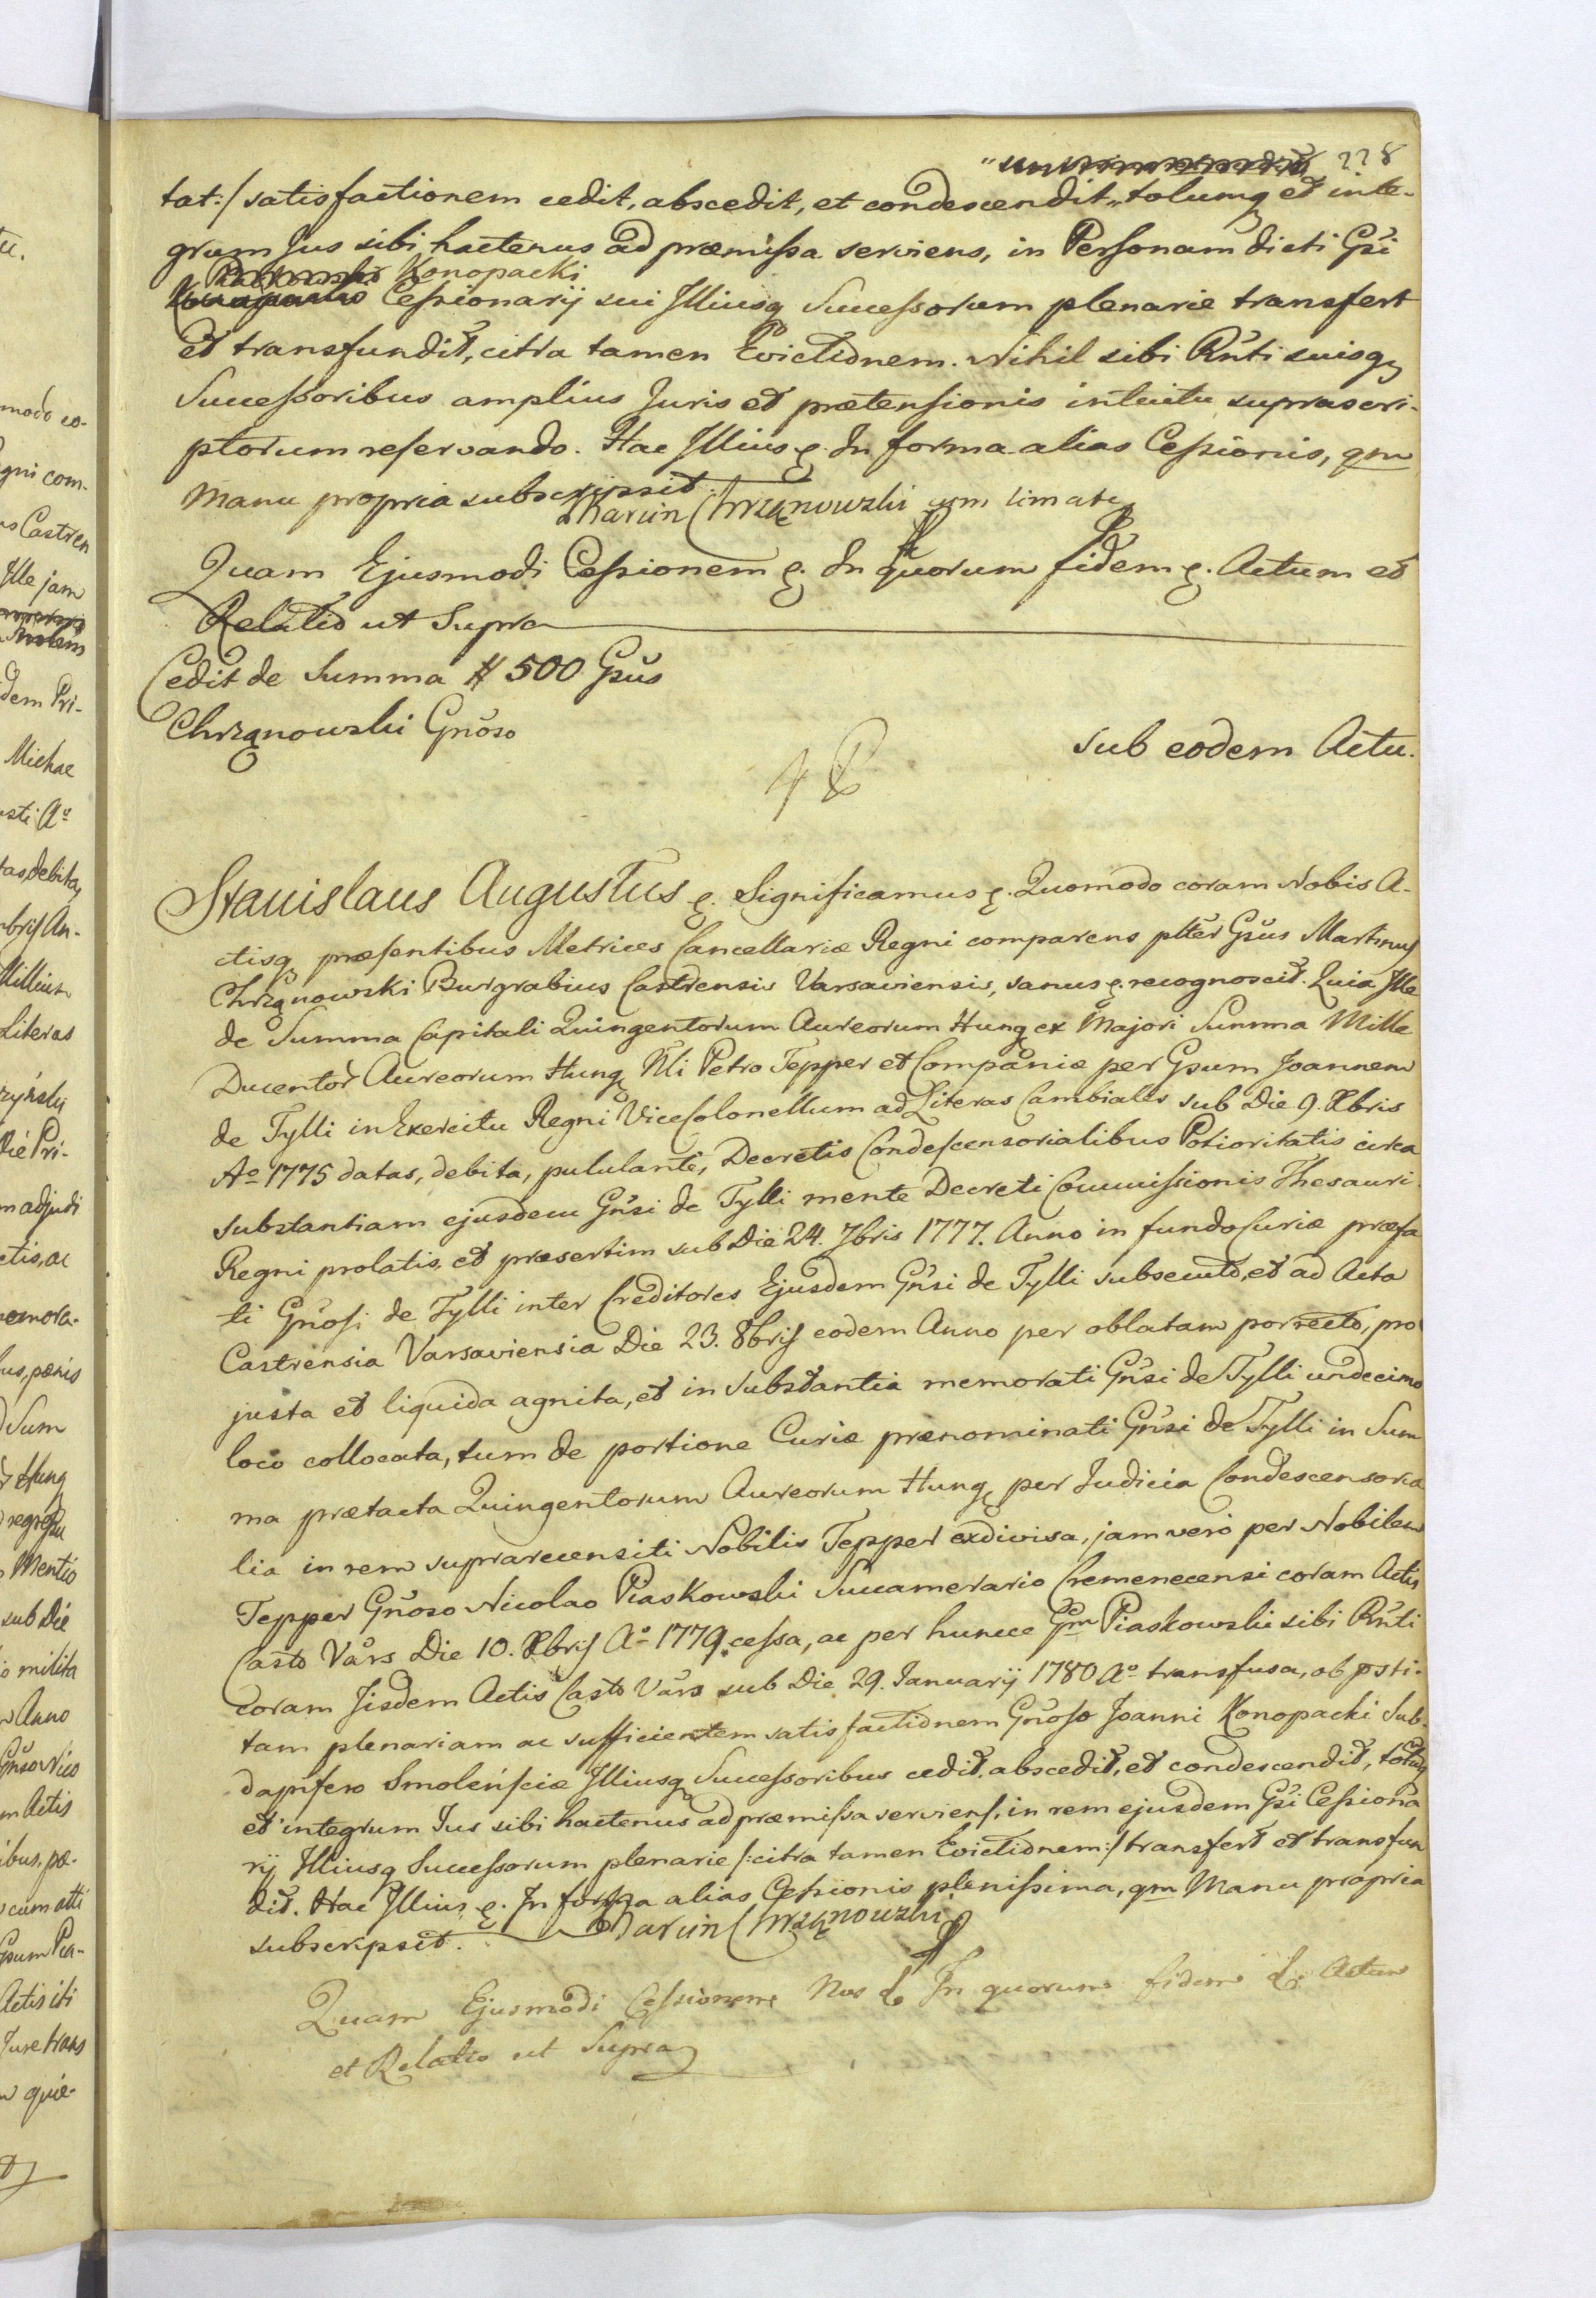 228
tat:/ satisfactionem cedit, abscedit, et condescendit, totumq et inte-
grum Jus sibi hactenus ad præmissa serviens, in Personam dicti Gsi
Konopacki
Cessionarij sui Illiusq Successorum plenarie transfert
et transfundit, citra tamen Evictionem. Nihil sibi Rnti suisq
Successoribus amplius Juris et prætensionis intuitu suprascri-
ptorum reservando. Hac Illius &. In forma alias Cessionis, qm
Manu propria subscripsit.
Marcin Chrząnowski
Quam Ejusmodi Cessionem &. In quorum fidem &. Actum et
Relatio ut Supra
Cedit de Summa # 500 Gsus
Chrząnowski Gnoso
sub eodem Actu.
Stanislaus Augustus &. Significamus &. Quomodo coram Nobis A-
ctisq præsentibus Metrices Cancellariæ Regni comparens plter Gsus Martinus
Chrząnowski Burgrabius Castrensis Varsaviensis, sanus &. recognoscit. Quia Ille
de Summa Capitali Quingentorum Aureorum Hung ex Majori Summa Mille
Ducentor Aureorum Hung Nli Petro Tepper et Companiæ per Gsum Joannem
de Tylli in Exercitu Regni ViceColonellum ad Literas Cambiales sub Die 9. Xbris
Ao 1775 datas, debita, pululante, Decretis Condescensorialibus Potioritatis circa
substantiam ejusdem Gnsi de Tylli mente Decreti Commissionis Thesauri
Regni prolatis, et præsertim sub Die 24. 7bris 1777. Anno in fundo Curiæ præfa
ti Gnosi de Tylli inter Creditores Ejusdem Gnsi de Tylli subsecuto, et ad Acta
Castrensia Varsaviensia Die 23. 8bris eodem Anno per oblatam porrecto, pro
justa et liquida agnita, et in substantia memorati Gnsi de Tylli undecimo
loco collocata, tum de portione Curiæ prænominati Gnsi de Tylli in Sum
ma prætacta Quingentorum Aureorum Hung per Judicia Condescensoria
lia in rem suprarecensiti Nobilis Tepper exdivisa, jam vero per Nobilem
Tepper Gnoso Nicolao Piaskowski Succamerario Cremenecensi coram Actis
Casto Vars Die 10. Xbris Ao 1779. cessa, ac per huncce Gsm Piaskowski sibi Rnti
coram Iisdem Actis Casto Vars sub Die 29. Januarij 1780 Ao transfusa, ob psti-
tam plenariam ac sufficientem satisfactionem Gnoso Joanni Konopacki Sub-
dapifero Smolensciæ Illiusq Successoribus cedit, abscedit, et condescendit, totumq
et integrum Jus sibi hactenus ad præmissa serviens, in rem ejusdem Gsi Cessiona
rij Illiusq Successorum plenarie /:citra tamen Evictionem:/ transfert et transfun
dit. Hac Illius &. In forma alias Cessionis plenissima, qm Manu propria
subscripsit. Marcin Chrząnowski
Quam Ejusmodi Cessionem Nos & In quorum fidem &. Actum
et Relatio ut Supra